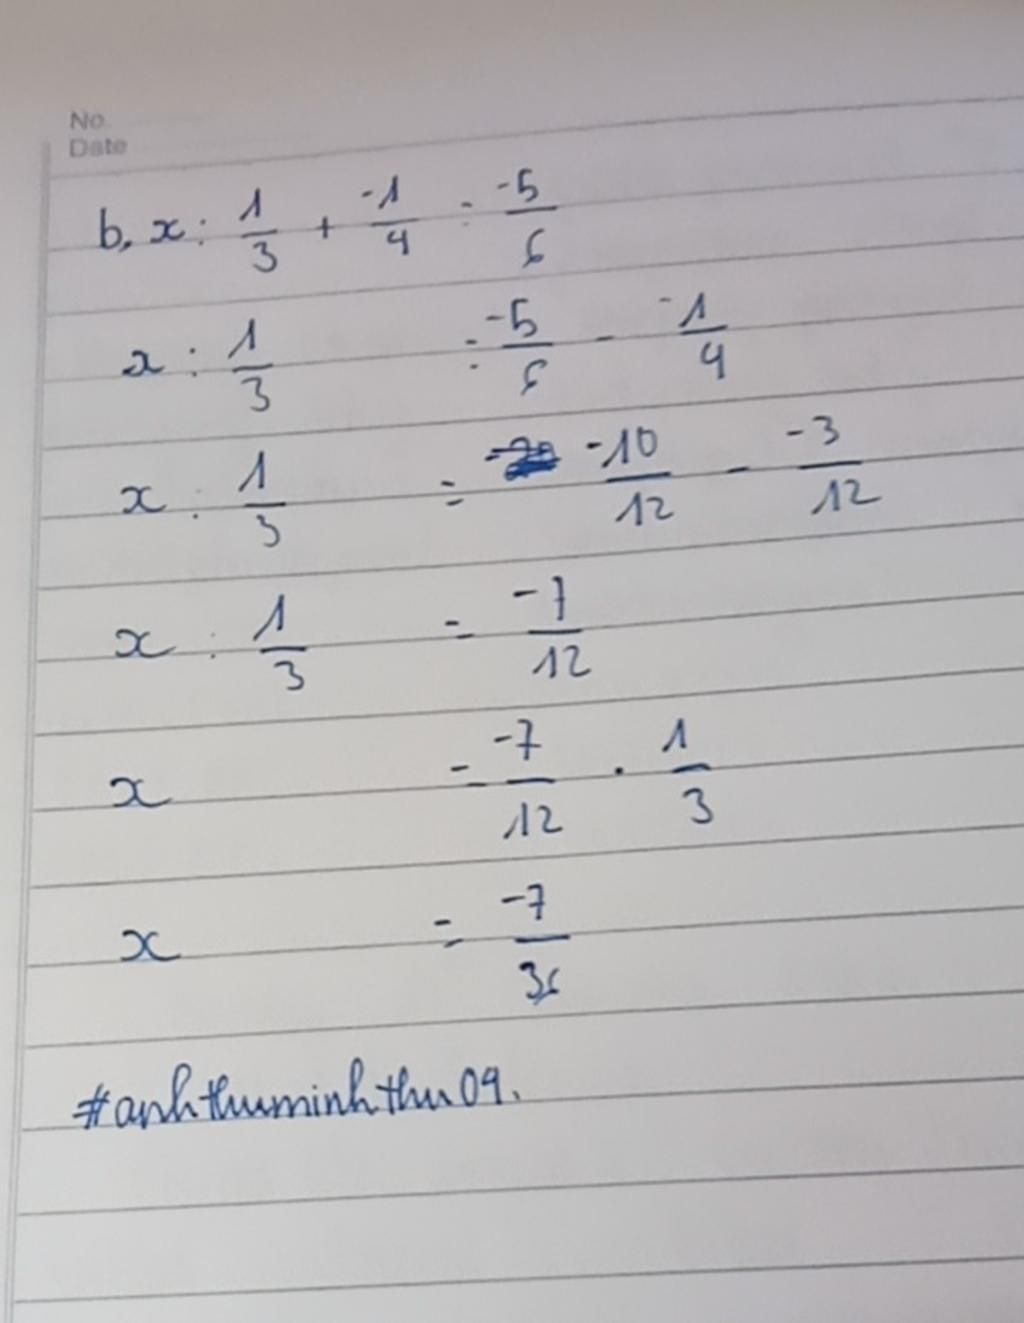 No.
Date
b, x : 1/3 + -1/4 = -5/6
x : 1/3 = -5/6 - -1/4
x : 1/3 = -10/12 - -3/12
x : 1/3 = -7/12
x = -7/12 . 1/3
x = -7/36
#anhthuminhthu09.